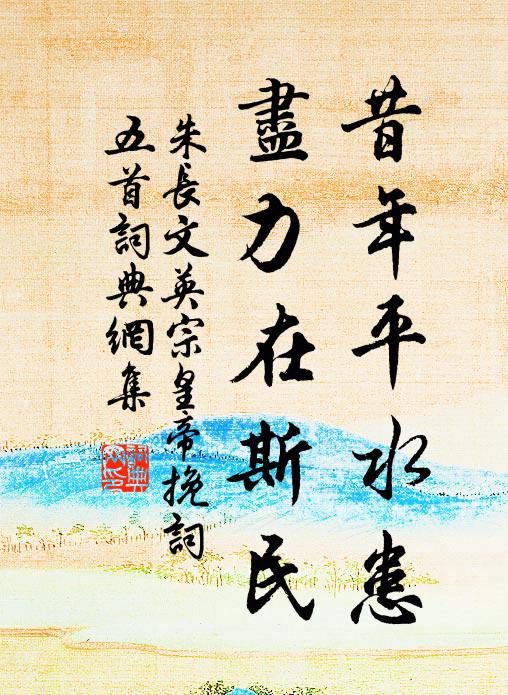 昔年平水患
盡力在斯民
朱長文英宗皇帝挽詞
五首詞典網集